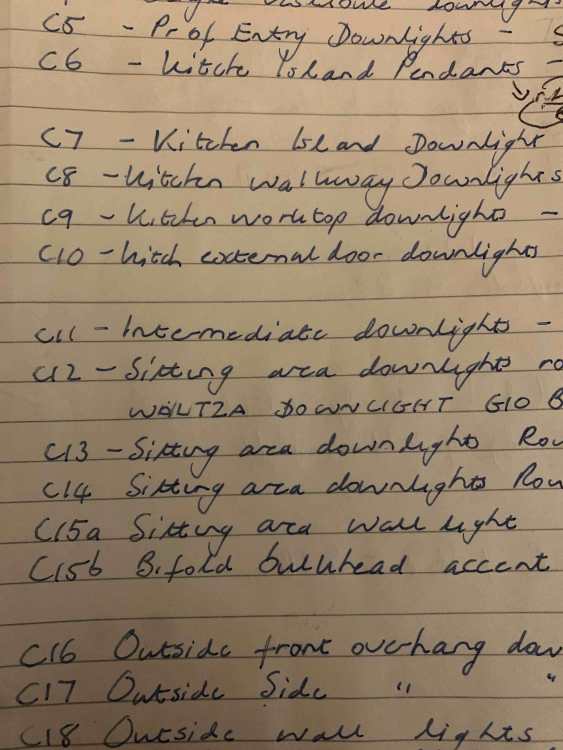 downlights
C5 - Prof Entry Downlights - S
C6 - Kitche Island Pendants -
C7 - Kitchen Island Downlight
C8 - Kitchen walkway Downlights
C9 - Kitchen worktop downlights -
C10 - Kitch external door downlights
C11 - Intermediate downlights -
C12 - Sitting area downlights ro
DOWNLIGHT G10 B
C13 - Sitting area downlights Rou
C14 Sitting area downlights Rou
C15a Sitting area wall light
C15b Bifold bulkhead accent
C16 Outside front overhang dow
C17 Outside Side " "
C18 Outside wall lights